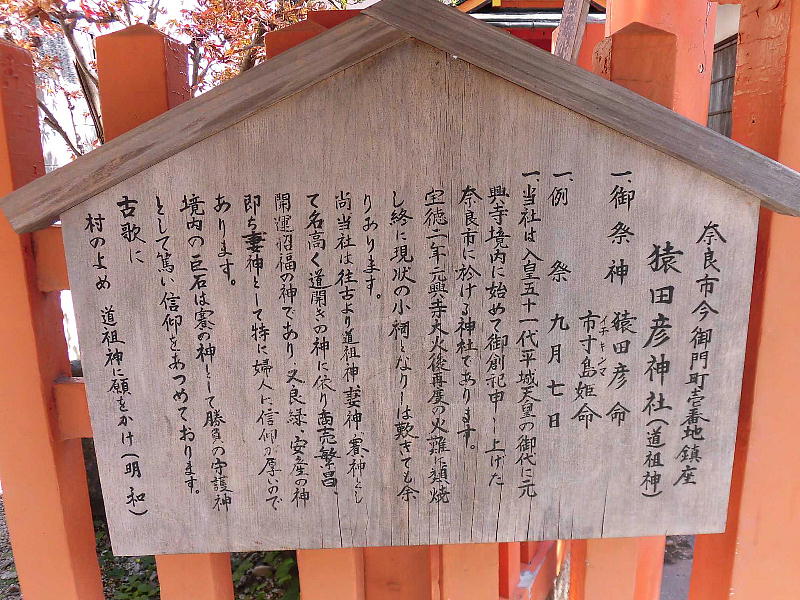 奈良市今御門町壱番地鎮座
猿田彦神社(道祖神)
一、御祭神 猿田彦命
イチキシマ
市寸島姫命
一、例祭 九月七日
一、当社は人皇五十一代平城天皇の御代に元
興寺境内に始めて御創祀申し上げた
奈良市に於ける神社であります。
宝徳二年元興寺大火後再度の火難に類焼
し終に現状の小祠となりしは歎きても余
りあります。
尚当社は往古より道祖神、妻神、賽神とし
て名高く道開きの神に依り商売繁昌、
開運招福の神であり、又良縁、安産の神
即ち妻神として特に婦人に信仰が厚いので
あります。
境内の巨石は賽の神として勝負の守護神
として篤い信仰をあつめております。
古歌に
村のよめ 道祖神に願をかけ(明和)